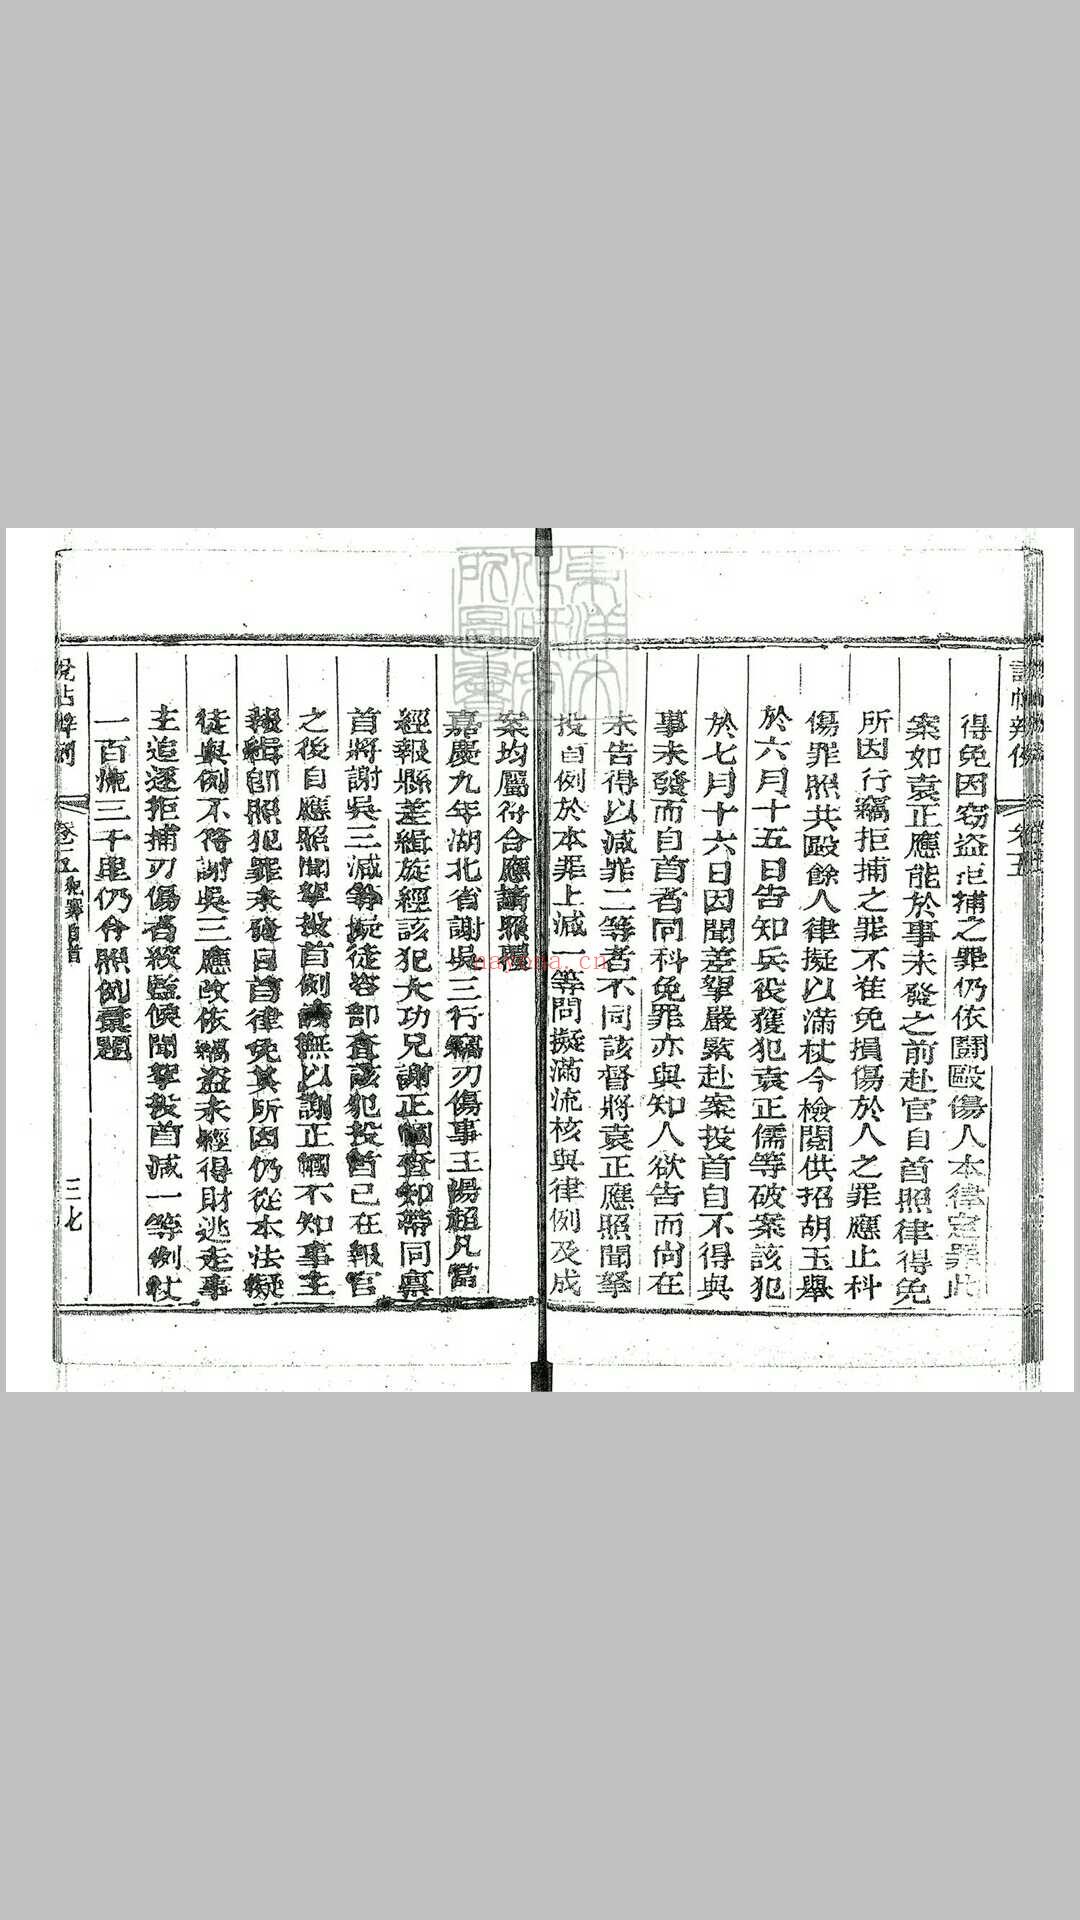 得免因窃盗拒捕之罪仍依鬭毆傷人本律定罪此
案如袁正應能於事未發之前赴官自首照律得免
所因行竊拒捕之罪不准免損傷於人之罪應止科
傷罪照共毆餘人律擬以滿杖今檢閱供招胡玉舉
於六月十五日告知兵役獲犯袁正儒等破案該犯
於七月十六日因聞差拏嚴緊赴案投首自不得與
事未發而自首者同科免罪亦與知人欲告而尙在
未告得以減罪二等者不同該督將袁正應照聞拏
投首例於本罪上減一等問擬滿流核與律例及成
案均屬符合應請照覆
嘉慶九年湖北省謝吳三行竊刃傷事主陽超凡當
經報縣差緝旋經該犯大功兄謝正幗查知帶同稟
首將謝吳三減等擬徒咨部查該犯投首已在報官
之後自應照聞拏投首例該撫以謝正幗不知事主
報緝卽照犯罪未發自首律免其所因仍從本法擬
徒與例不符謝吳三應改依竊盗未經得財逃走事
主追逐拒捕刃傷者絞監候聞拏投首減一等例杖
一百流三千里仍令照例彙題
說帖辨例 卷之五 犯罪自首 三七
nayona.cn